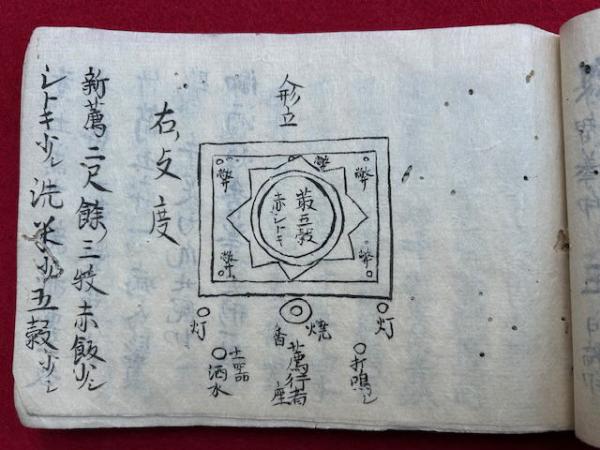 人形立
幣
幣
幣
幣
幣
蓑五穀
赤シトキ
灯
焼香
灯
土器
洒水
薦行者座
打鳴シ
右支度
新薦二尺餘三枚赤飯少シ
シトキ少シ洗米少シ五穀少シ